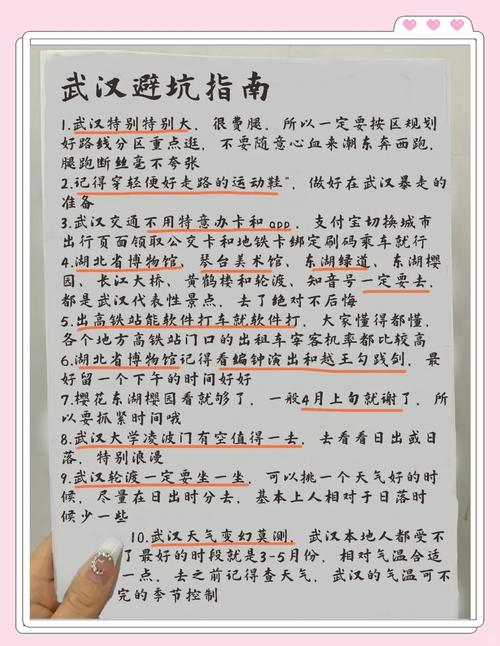 武汉避坑指南
1.武汉特别特别大，很费腿，所以一定要按区规划
好路线分区重点逛，不要随意心血来潮东奔西跑，
腿跑断丝毫不夸张
2.记得穿轻便好走路的运动鞋"，做好在武汉暴走的
准备
3.武汉交通不用特意办卡和app，支付宝切换城市
出行页面领取公交卡和地铁卡绑定刷码乘车就行
4.湖北省博物馆、琴台美术馆、东湖绿道、东湖樱
园、长江大桥、黄鹤楼和轮渡、知音号一定要去，
都是武汉代表性景点，去了绝对不后悔
5.出高铁站能软件打车就软件打，大家懂得都懂，
各个地方高铁站门口的出租车宰客机率都比较高
6.湖北省博物馆记得看编钟演出和越王勾践剑，最
好留一个下午的时间好好
7.樱花东湖樱园看就够了，一般4月上旬就谢了，所
以要抓紧时间哦
8.武汉大学凌波门有空值得一去，去看看日出或日
落，特别浪漫
9.武汉轮渡一定要坐一坐，可以挑一个天气好的时
候，尽量在日出时分去，基本上人相对于日落时
候少一些
10.武汉天气变幻莫测，武汉本地人都受不
了最好的时段就是3-5月份，相对气温合适
一点，去之前记得查天气，武汉的气温可不
完的季节控制